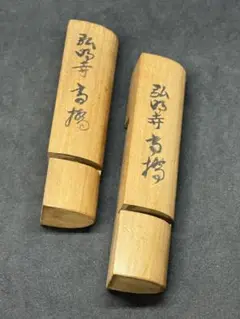 弘明寺 高橋
弘明寺 高橋